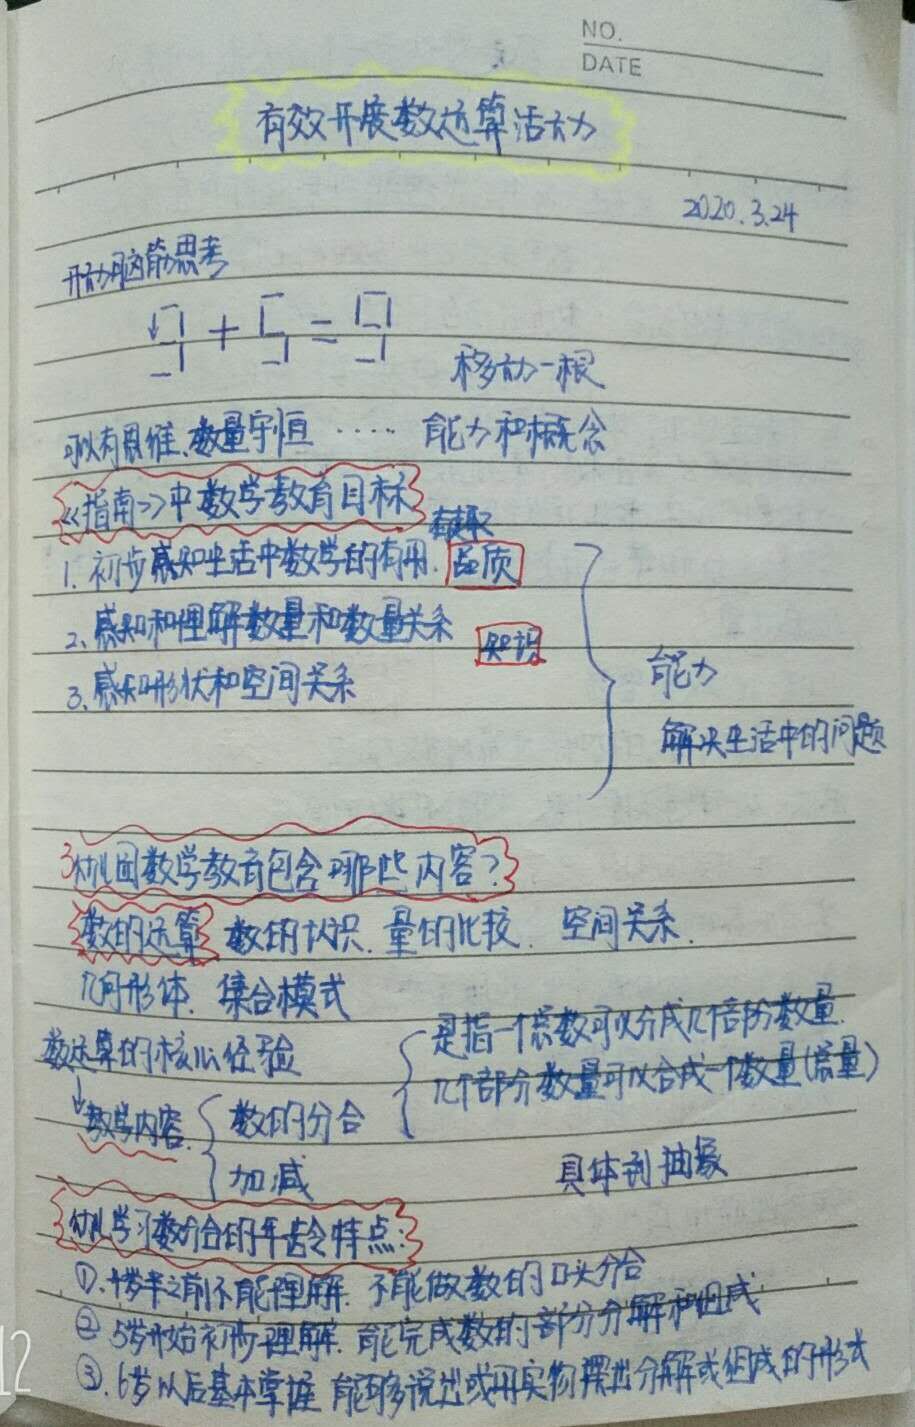 NO.
DATE
有效开展数运算活动
2020.3.24
开动脑筋思考
9 + 5 = 9
移动一根
可以有思维、数量守恒 ····· 能力和概念
《指南》中数学教育目标
1. 初步感知生活中数学的有用. 品质
2、感知和理解数量和数量关系
知识
3、感知形状和空间关系
能力
解决生活中的问题
幼儿园数学教育包含哪些内容?
数的运算 数的认识. 量的比较. 空间关系.
几何形体. 集合模式
数运算的核心经验
是指一个总数可以分成几个部分数量.
几个部分数量可以合成一个数量(总量)
教学内容
数的分合
加减
具体到抽象
幼儿学习数分合的年龄特点:
①.4岁半之前不能理解. 不能做数的口头分合
② 5岁开始初步理解. 能完成数的部分分解和组成
③.6岁以后基本掌握 能够多说出或用实物摆出分解或组成的形式
12